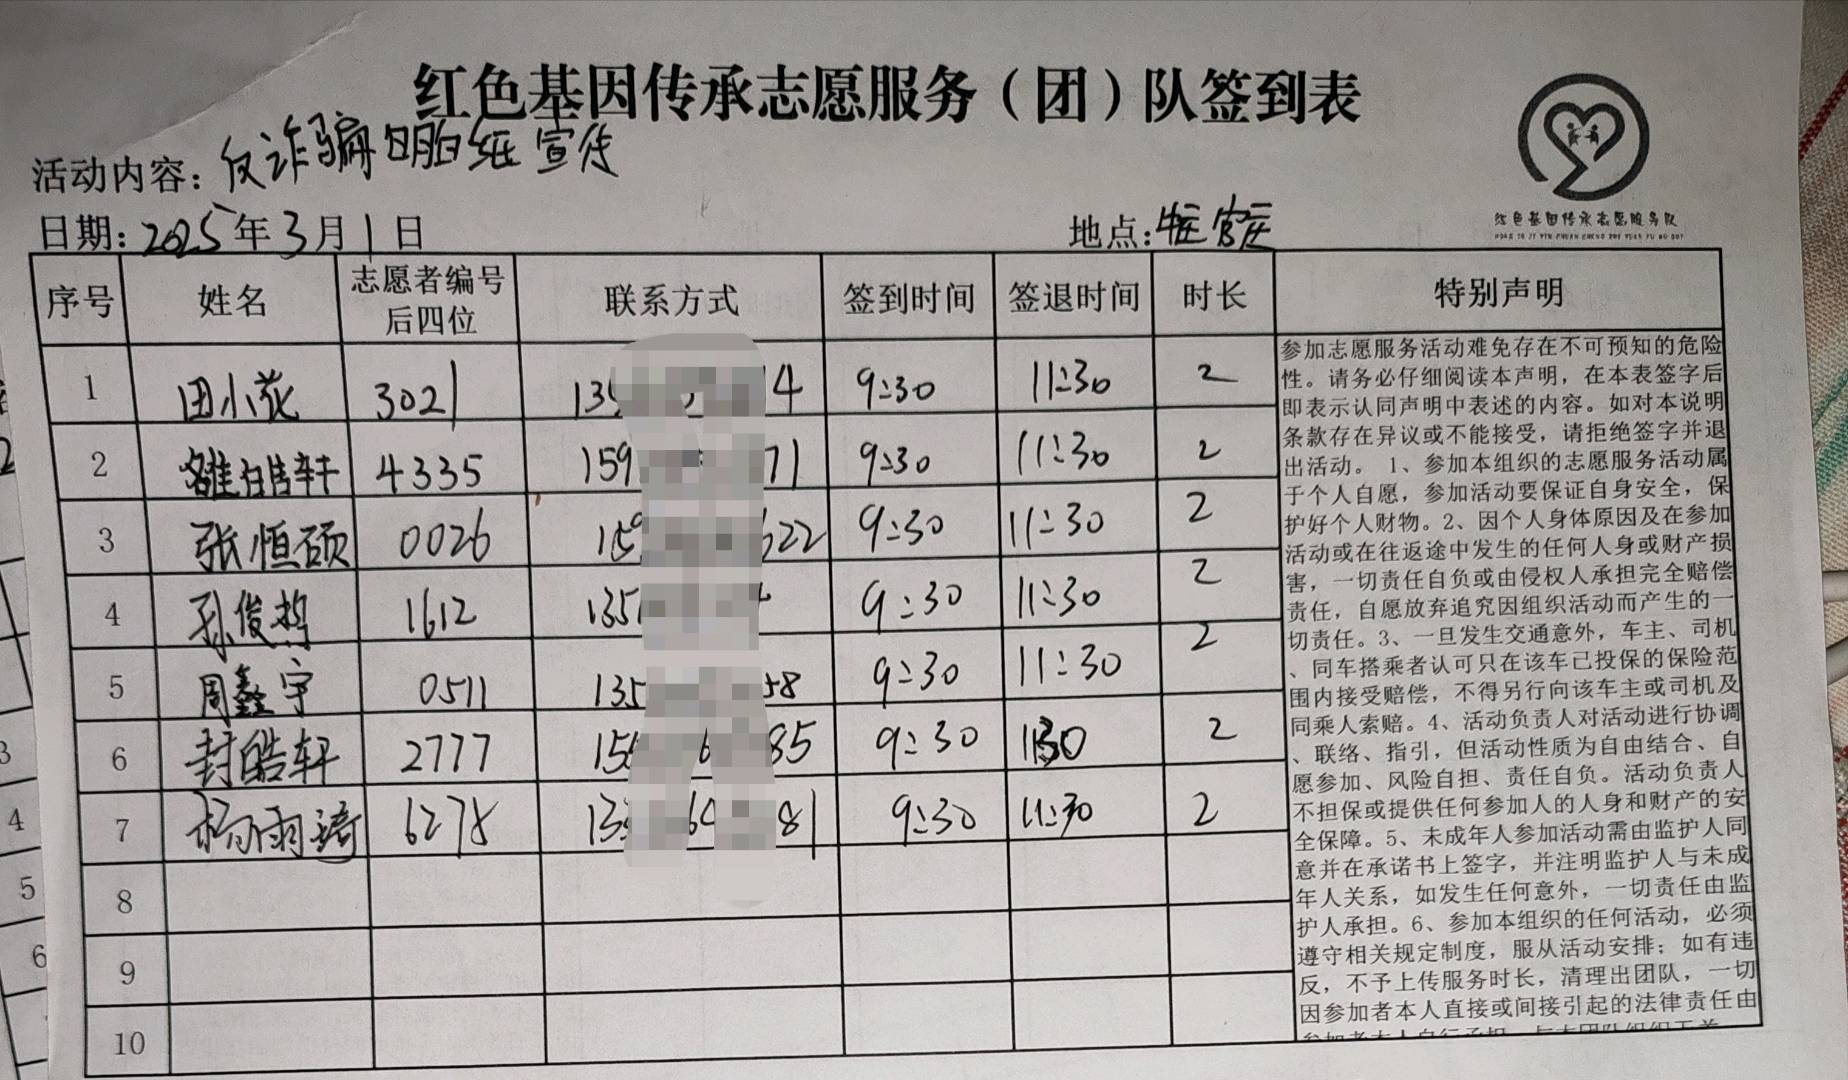 红色基因传承志愿服务（团）队签到表
活动内容：反诈骗 宣传
红色基因传承志愿服务队
日期：2025年3月1日 地点：
序号 姓名 志愿者编号后四位 联系方式 签到时间 签退时间 时长 特别声明
1 田小花 3021 13 14 9:30 11:30 2
2 轩 4335 159 71 9:30 11:30 2
3 张恒硕 0026 15 622 9:30 11:30 2
4 孙俊哲 1612 135 9:30 11:30 2
5 周鑫宇 0511 135 58 9:30 11:30 2
6 封皓轩 2777 15 85 9:30 1130 2
7 杨雨琦 6278 13 81 9:30 11:30 2
8
9
10
参加志愿服务活动难免存在不可预知的危险
性。请务必仔细阅读本声明，在本表签字后
即表示认同声明中表述的内容。如对本说明
条款存在异议或不能接受，请拒绝签字并退
出活动。 1、参加本组织的志愿服务活动属
于个人自愿，参加活动要保证自身安全，保
护好个人财物。2、因个人身体原因及在参加
活动或在往返途中发生的任何人身或财产损
害，一切责任自负或由侵权人承担完全赔偿
责任，自愿放弃追究因组织活动而产生的一
切责任。3、一旦发生交通意外，车主、司机
、同车搭乘者认可只在该车已投保的保险范
围内接受赔偿，不得另行向该车主或司机及
同乘人索赔。4、活动负责人对活动进行协调
、联络、指引，但活动性质为自由结合、自
愿参加、风险自担、责任自负。活动负责人
不担保或提供任何参加人的人身和财产的安
全保障。5、未成年人参加活动需由监护人同
意并在承诺书上签字，并注明监护人与未成
年人关系，如发生任何意外，一切责任由监
护人承担。6、参加本组织的任何活动，必须
遵守相关规定制度，服从活动安排；如有违
反，不予上传服务时长，清理出团队，一切
因参加者本人直接或间接引起的法律责任由